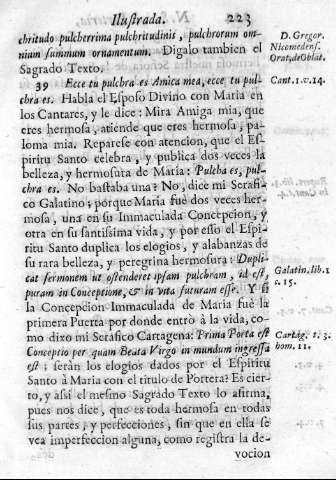 Ilustrada. 223
chritudo pulcherrima pulchritudinis, pulchrorum om-
nium summum ornamentum. Digalo tambien el
Sagrado Texto.
D. Gregor.
Nicomedens.
Orat. de Oblat.
39 Ecce tu pulchra es Amica mea, ecce tu pul-
chra es. Habla el Esposo Divino con Maria en
los Cantares, y le dice: Mira Amiga mia, que
eres hermosa, atiende que eres hermosa, pa-
loma mia. Reparese con atencion, que el Es-
piritu Santo celebra, y publica dos veces la
belleza, y hermosura de Maria: Pulcha es, pul-
chra es. No bastaba una? No, dice mi Serafi-
co Galatino; porque Maria fuè dos veces her-
mosa, una en su Immaculada Concepcion, y
otra en su santissima vida, y por esso el Espi-
ritu Santo duplica los elogios, y alabanzas de
su rara belleza, y peregrina hermosura: Dupli-
cat sermonem ut ostenderet ipsam pulchram, id est,
puram in Conceptione, & in vita futuram esse. Y si
la Concepcion Immaculada de Maria fuè la
primera Puerta por donde entrò à la vida, co-
mo dixo mi Serafico Cartagena: Prima Porta est
Conceptio per quam Beata Virgo in mundum ingressa
est: seràn los elogios dados por el Espiritu
Santo à Maria con el titulo de Portera? Es cier-
to, y assi el mesmo Sagrado Texto lo afirma,
pues nos dice, que es toda hermosa en todas
sus partes, y perfecciones, sin que en ella se
vea imperfeccion alguna, como registra la de-
vocion
Cant. 1. v. 14.
Galatin. lib. 1
c. 15.
Cartàg. t. 3.
hom. 11.